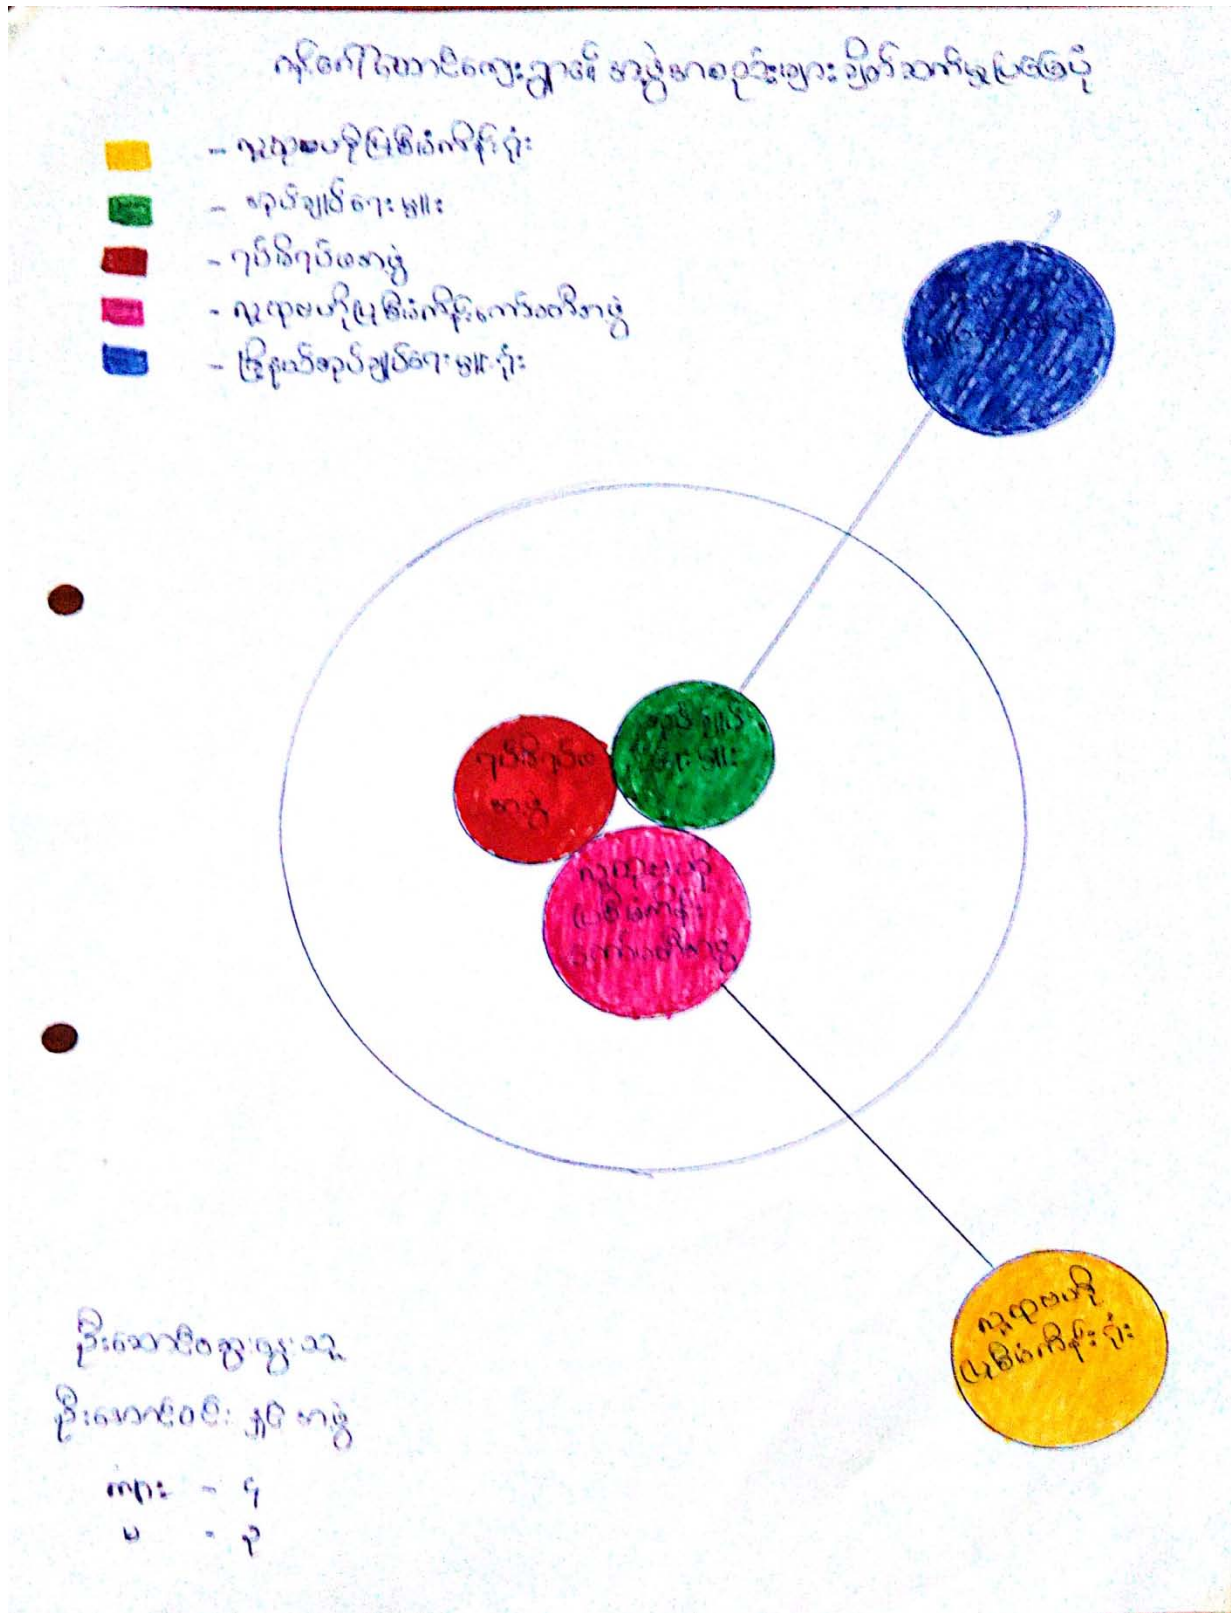 ကျေးရွာ၏ အဖွဲ့အစည်းများ ချိတ်ဆက်မှုပြမြေပုံ
- လူထုဗဟိုပြုစီမံကိန်းရုံး
- အုပ်ချုပ်ရေးမှူး
- ရပ်မိရပ်ဖအဖွဲ့
- လူထုဗဟိုပြုစီမံကိန်းကော်မတီအဖွဲ့
- မြို့နယ်အုပ်ချုပ်ရေးမှူးရုံး
အုပ်ချုပ်
ရေးမှူး
ရပ်မိရပ်ဖ
အဖွဲ့
လူထုဗဟို
ပြုစီမံကိန်း
ကော်မတီအဖွဲ့
လူထုဗဟို
ပြုစီမံကိန်းရုံး
ဦးဆောင်ဆွေးနွေးသူ
ဦးအောင်ဝင်း နှင့် အဖွဲ့
ကျား - ၄
မ - ၃